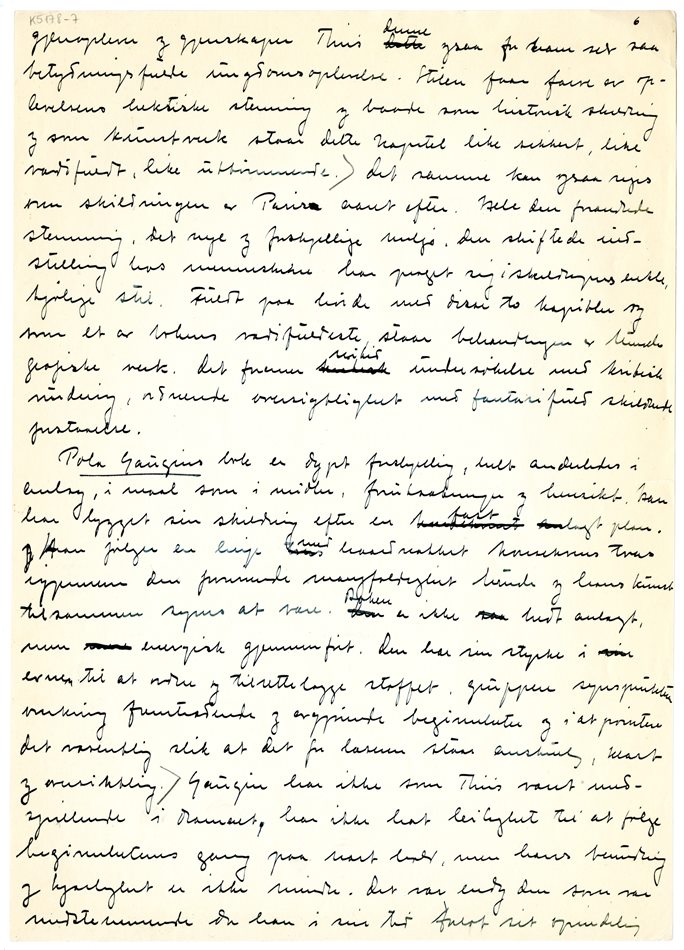 K5178-7
6
gjenopleve og gjenskaper Thiis denne ogsaa for ham selv saa
betydningsfulde ungdomsoplevelse. Stilen faar farve av op-
levelsens hektiske stemning og baade som historisk skildring
og som kunstverk staar dette kapitel like sikkert, like
verdifuldt, like uttømmende. Det samme kan ogsaa sies
om skildringen av Paris aaret efter. Hele den forandrede
stemning, det nye og forskjellige miljø, den skiftede ind-
stilling hos menneskene har præget sig i skildringens enkle,
kjølige stil. Fuldt paa høide med disse to kapitler og
som et av bokens verdifuldeste staar behandlingen av Munchs
grafiske verk. Det forener undersøkelse med kritisk
vurdering, ordnende oversigtlighet med fantasifuld skildrende
forstaaelse.
Pola Gauguins bok er dypt forskjellig, helt anderledes i
anlæg, i maal som i midler, forutsætninger og hensikt. Han
har bygget sin skildring efter en fast lagt plan.
Han følger en linje med haardnakket konsekvens tvers
igjennem den forvirrende mangfoldighet Munchs og hans kunst
tilsammen synes at være. Boken er ikke bredt anlagt,
men energisk gjennemført. Den har sin styrke i
evnen til at ordne og tilrettelægge stoffet, gruppere synspunkter
virkning fremtrædende og avgjørende begivenheter og i at pointere
det væsentlig slik at det for læseren staar anskuelig, klart
og oversiktlig. Gauguin har ikke som Thiis været med-
spillende i dramaet, har ikke hat leilighet til at følge
begivenhetens gang paa nært hold, men hans beundring
og kjærlighet er ikke mindre. Det var endog den som var
medstemmende da han i sin tid sit oprindelig